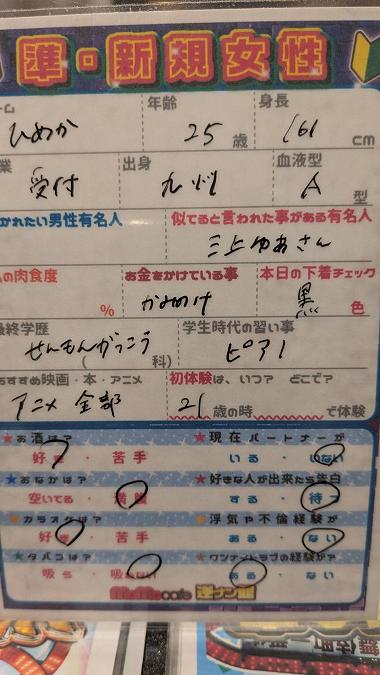 準・新規女性
ーム 年齢 身長
ひめか 25 歳 161 cm
業 出身 血液型
受付 九州 A 型
かれたい男性有名人 似てると言われた事がある有名人
三上ゆあさん
の肉食度 お金をかけている事 本日の下着チェック
% 黒 色
最終学歴 学生時代の習い事
せんもんがっこう ( 科) ピアノ
おすすめ映画・本・アニメ 初体験は、いつ? どこで?
アニメ 全部 21 歳の時 で体験
★お酒は? ★現在パートナーが
好き・苦手 いる・いない
★おなかは? ★好きな人が出来たら告白
空いてる・満腹 する・待つ
★カラオケは? ★浮気や不倫経験が
好き・苦手 ある・ない
★タバコは? ★ワンナイトラブの経験が?
吸う・吸わない ある・ない
cafe